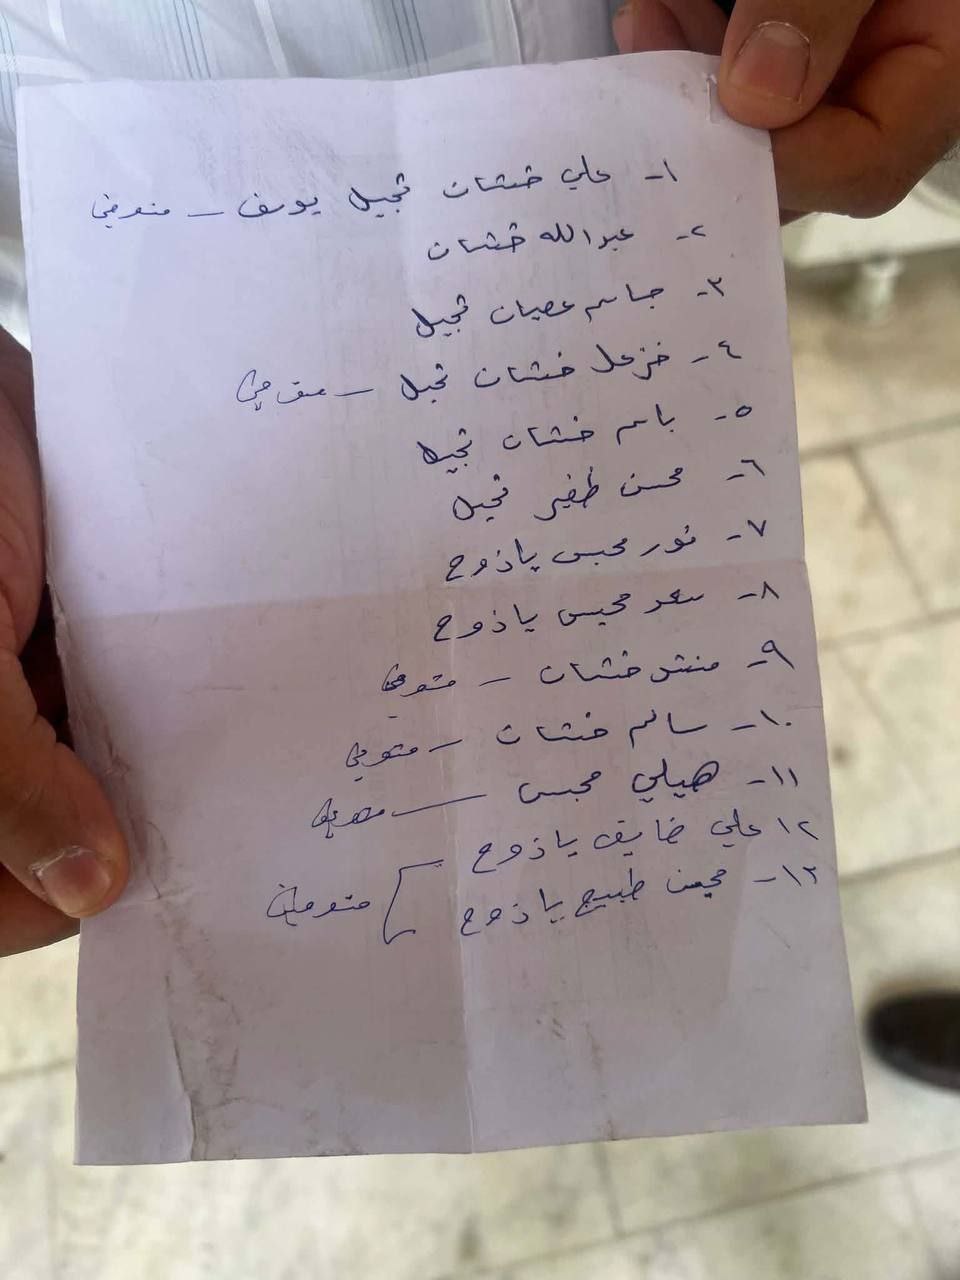 ١- علي خشان ثجيل يوسف - متوفي
٢- عبدالله خشان
٣- جاسم عصبان ثجيل
٤- خزعل خشان ثجيل - متوفي
٥- باسم خشان ثجيل
٦- محسن ظفير ثجيل
٧- نور محيسن ياذوح
٨- سعد محيسن ياذوح
٩- منشد خشان - متوفي
١٠- سالم خشان - متوفي
١١- هيلي محيسن - متوفي
١٢ علي ضايف ياذوح
١٣- محيسن طبيج ياذوح
متوفين